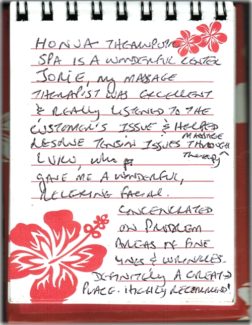 HONUA THERAPEUTIC
SPA IS A WONDERFUL CENTER
JORIE, my MASSAGE
THERAPIST WAS EXCELLENT
& REALLY LISTENED TO THE
CUSTOMER'S ISSUE & HELPED
RESOLVE TENSION ISSUES THROUGH
MASSAGE
Therapy
GAVE ME A WONDERFUL,
RELAXING FACIAL.
CONCENTRATED
ON PROBLEM
AREAS OF FINE
LINES & WRINKLES.
DEFINITELY A GREAT
PLACE. HIGHLY RECOMMEND!